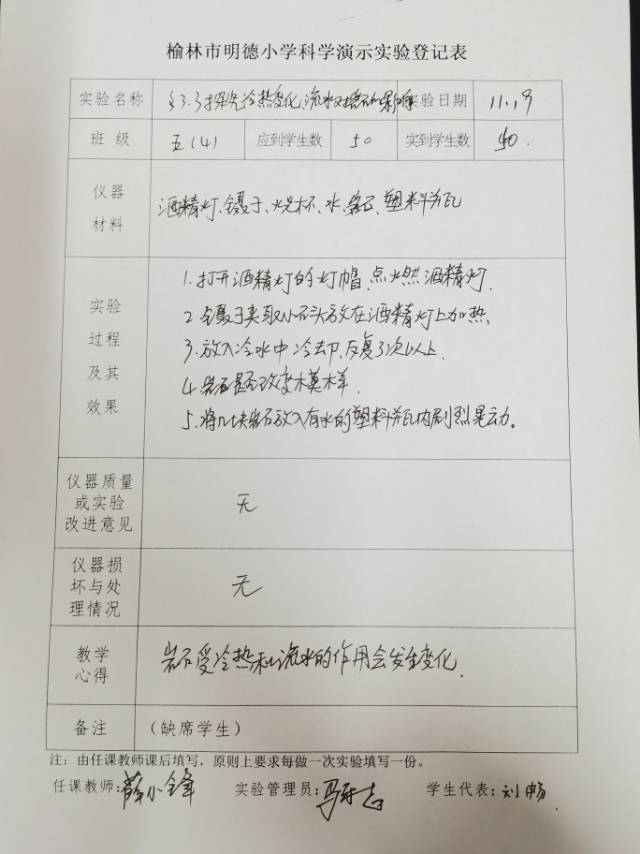 榆林市明德小学科学演示实验登记表
实验名称 §3.3探究冷热变化、流水对岩石的影响 实验日期 11.19
班级 五(4) 应到学生数 50 实到学生数 50.
仪器材料 酒精灯、镊子、烧杯、水、岩石、塑料瓶
实验过程及其效果
1.打开酒精灯的灯帽,点燃酒精灯.
2.镊子夹取小石头放在酒精灯上加热.
3.放入冷水中冷却,反复3次以上.
4.岩石是否改变模样.
5.将几块岩石放入有水的塑料瓶内剧烈晃动。
仪器质量或实验改进意见 无
仪器损坏与处理情况 无
教学心得 岩石受冷热和流水的作用会发生变化.
备注 (缺席学生)
注:由任课教师课后填写,原则上要求每做一次实验填写一份。
任课教师:薛小锋 实验管理员: 学生代表:刘畅